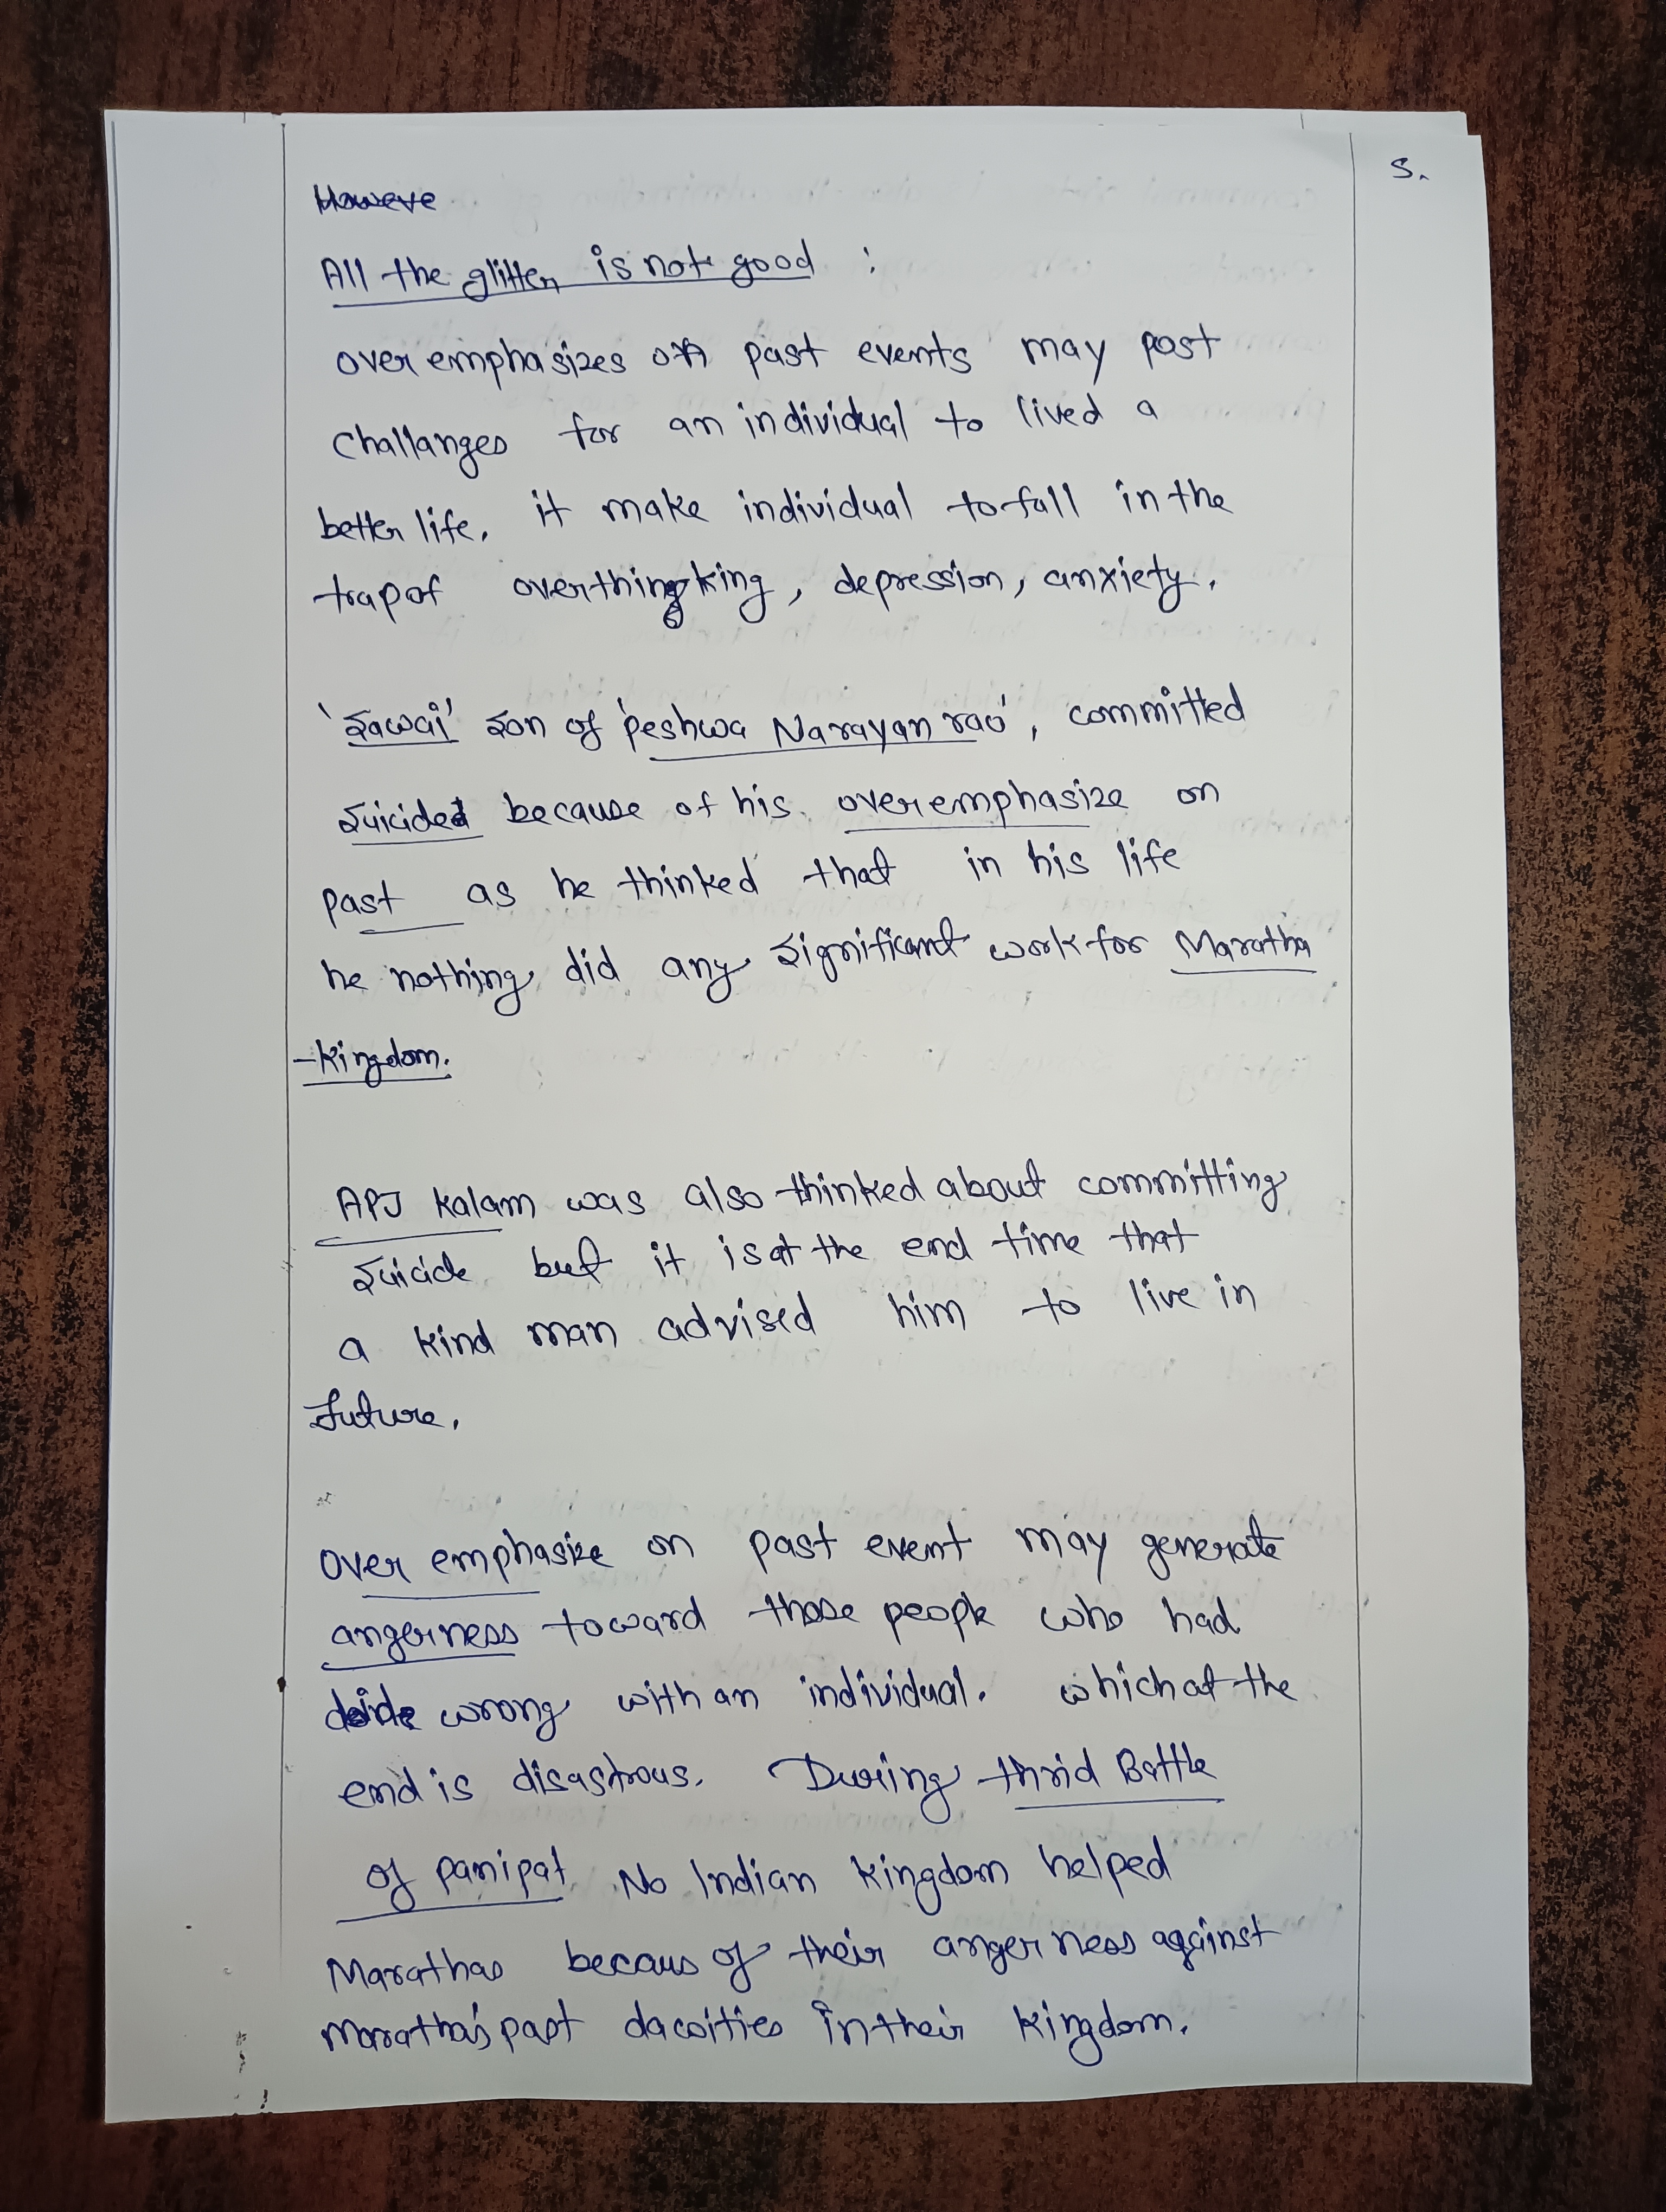 Howeve
5.
All the glitter is not good :
over emphasizes on past events may post
challanges for an individual to lived a
better life. it make individual to fall in the
trap of overthingking, depression, anxiety.
'Sawai' son of 'peshwa Narayan rao', committed
suicided because of his overemphasize on
past as he thinked that in his life
he nothing did any significant work for Maratha
-kingdom.
APJ Kalam was also thinked about committing
suicide but it is at the end time that
a kind man advised him to live in
future.
over emphasize on past event may generate
angerness toward those people who had
wrong with an individual. which at the
end is disastrous. During thrid Battle
of panipat No Indian kingdom helped
Marathas becaus of their angerness against
Maratha's past dacoities in their kingdom.